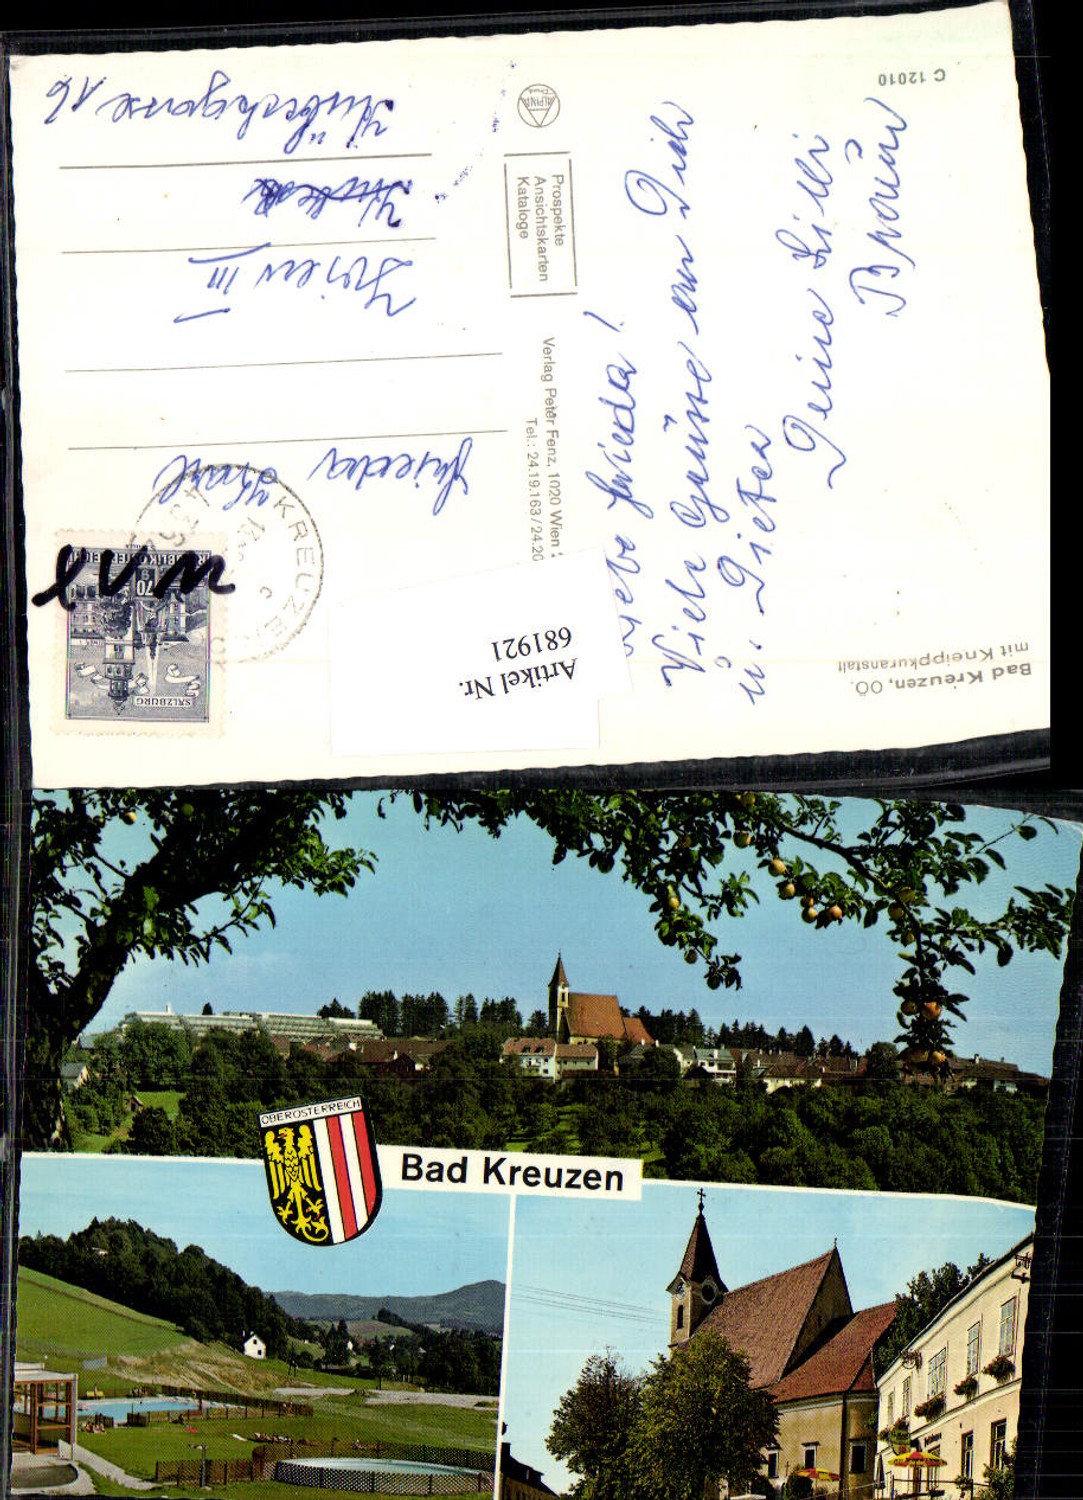 C 12010
ALPINA
Prospekte
Ansichtskarten
Kataloge
Verlag Peter Fenz, 1020 Wien
Tel.: 24.19.163/24.20
Bad Kreuzen, OÖ.
mit Kneippkuranstalt
Frieda!
Viele Grüsse an Dich
Deine Lilli
u. Dieter
Braun
Frieda
Wien III
16
KREUZEN
REPUBLIK ÖSTERREICH
70
SALZBURG
Artikel Nr.
681921
OBERÖSTERREICH
Bad Kreuzen